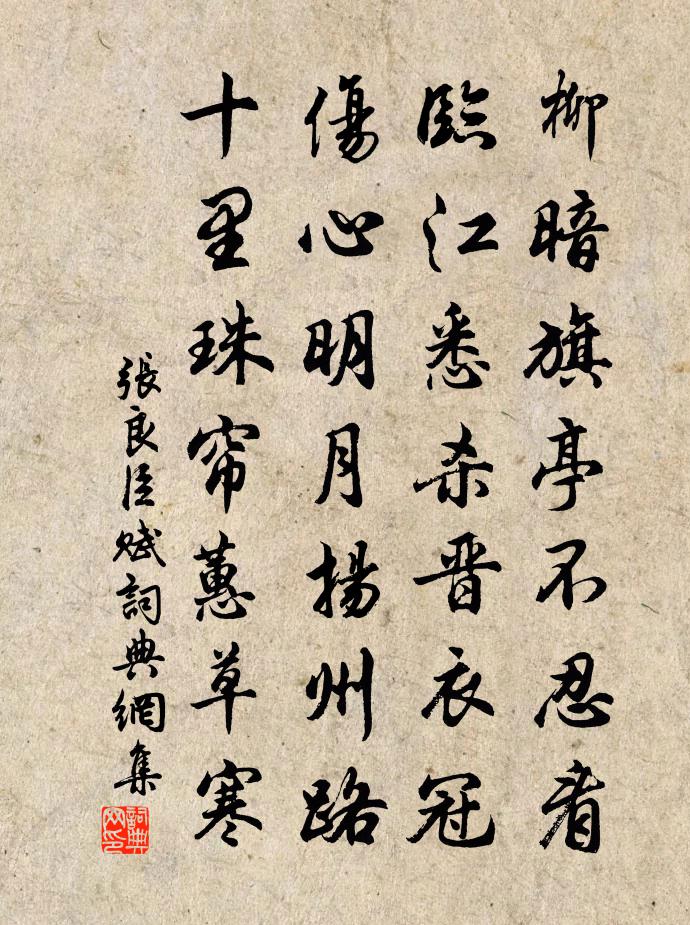 柳暗旗亭不忍看
臨江悉杀晋衣冠
傷心明月揚州路
十里珠帘蕙草寒
張良臣赋詞典網集
詞典
网印